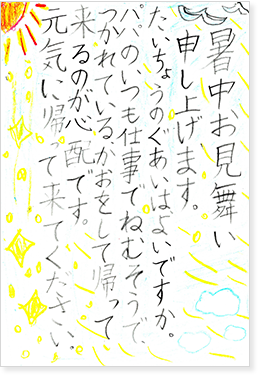 暑中お見舞い
申し上げます。
たいちょうのぐあいはよいですか。
パパのいつも仕事でねむそうで、
つかれているかおをして帰って
来るのが心配です。
元気に帰って来てください。